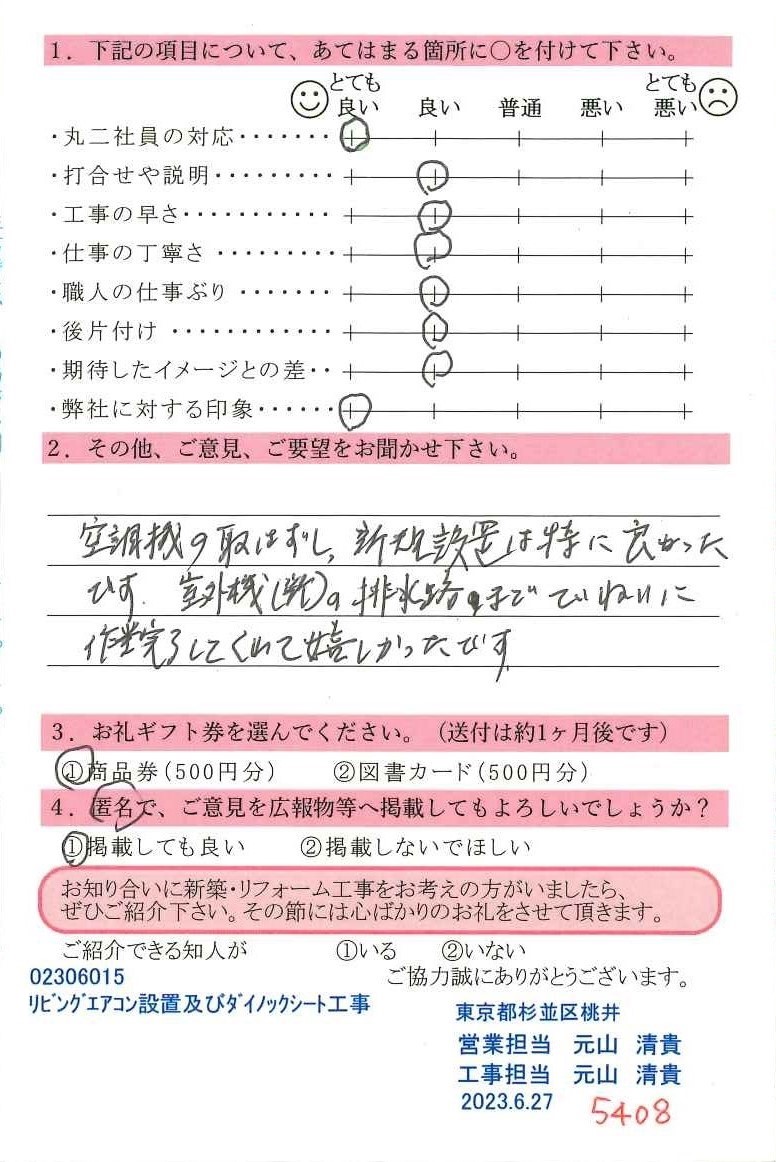 1. 下記の項目について、あてはまる箇所に○を付けて下さい。
とても良い 良い 普通 悪い とても悪い
・丸二社員の対応・・・・・・・
・打合せや説明・・・・・・・・・
・工事の早さ・・・・・・・・・・・
・仕事の丁寧さ・・・・・・・・・
・職人の仕事ぶり・・・・・・・
・後片付け・・・・・・・・・・・・
・期待したイメージとの差・・
・弊社に対する印象・・・・・・
2. その他、ご意見、ご要望をお聞かせ下さい。
空調機の取はずし、新規設置は特に良かった
です. 室外機()の排水路までていねいに
作業完了してくれて嬉しかったです
3. お礼ギフト券を選んでください。(送付は約1ヶ月後です)
①商品券(500円分) ②図書カード(500円分)
4. 匿名で、ご意見を広報物等へ掲載してもよろしいでしょうか？
①掲載しても良い ②掲載しないでほしい
お知り合いに新築・リフォーム工事をお考えの方がいましたら、
ぜひご紹介下さい。その節には心ばかりのお礼をさせて頂きます。
ご紹介できる知人が ①いる ②いない
02306015
ご協力誠にありがとうございます。
ﾘﾋﾞﾝｸﾞｴｱｺﾝ設置及びﾀﾞｲﾉｯｸｼｰﾄ工事
東京都杉並区桃井
営業担当 元山 清貴
工事担当 元山 清貴
2023.6.27
5408